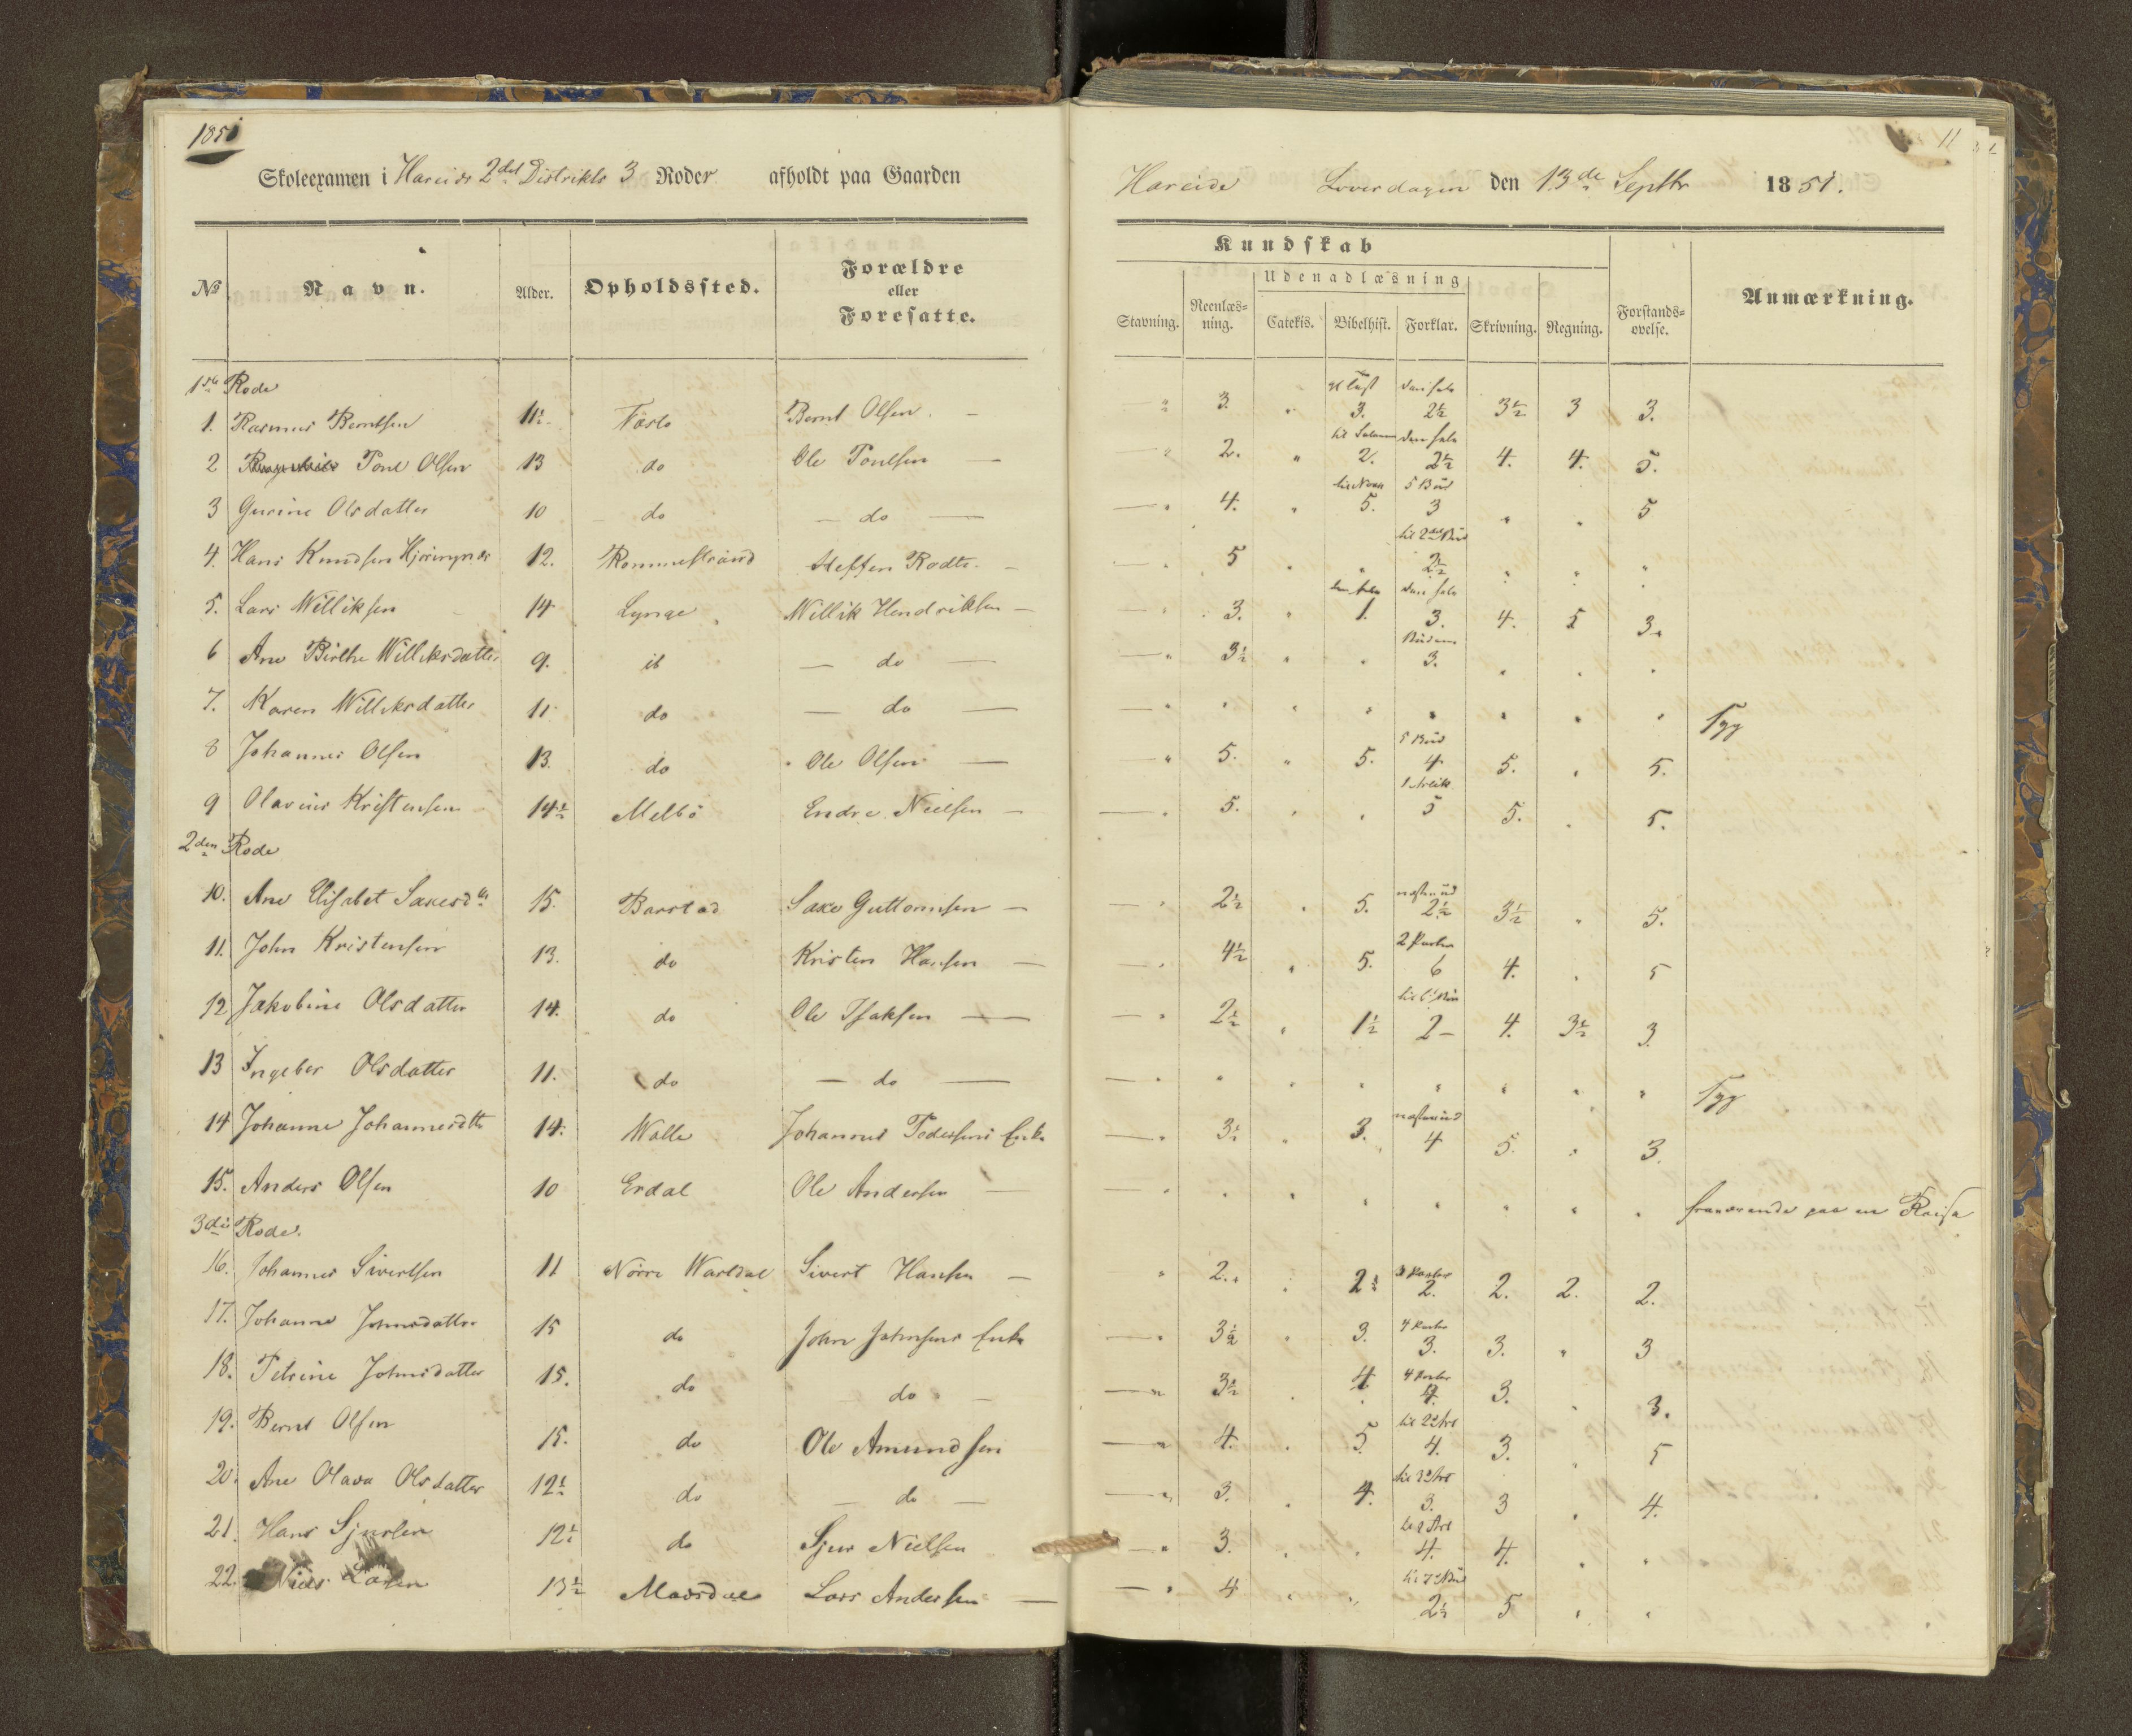 1851
Skoleexamen i Hareids 2det Distrikts 3 Roder afholdt paa Gaarden
Hareide Löverdagen den 13de Septbr 1851.
11
Kundskab
Udenadlæsning
No Navn. Alder. Opholdssted. Forældre eller Foresatte. Stavning. Reenlæsning. Catekis. Bibelhist. Forklar. Skrivning. Regning. Forstandsøvelse. Anmærkning.
1ste Rode
1. Rasmus Berntsen 11½ Bernt Olsen. — " 3. " 3. 2½ 3½ 3 3.
2 Poul Olsen 13 do Ole Poulsen — " 2. " 2. 2½ 4. 4. 5.
3 Gurine Olsdatter 10 do — do — " 4. " 5. 5 Bud 3 " " 5
4. Hans Knudsen 12. Steffen — " 5 " " 2½ " " "
5. Lars Williksen 14 Lynge Willik Hendriksen — " 3. " 1. 3. 4. 5 3.
6 Ane Birthe Williksdatter 9. — do — " 3½ " " 3. " " "
7. Karen Williksdatter 11 do — do — " " " " " " " " Syg
8 Johannes Olsen 13. do Ole Olsen — " 5. " 5. 5 Bud 4 5. " 5.
9 Olavius Kristensen 14½ Melbö Endre Nielsen — " 5. " " 5 5. " 5.
2den Rode
10. Ane Elisabet Saxesdtr 15. Barstad Saxe Guttormsen — " 2½ " 5. 2½ 3½ " 5.
11. John Kristensen 13. do Kristen Hansen — " 4½ " 5. 2 Parter 6 4. " 5
12 Jakobine Olsdatter 14. do Ole Isaksen — " 2½ " 1½ 2 — 4. 3½ 3.
13 Ingebor Olsdatter 11. do — do — " " " " " " " " Syg
14 Johanne Johannesdtr 14. Walle Johannes Pedersens Enke — " 3½ " 3. 4 5. " 3.
15. Anders Olsen 10 Erdal Ole Andersen — " " " " " " " " fraværende paa en Reise
3die Rode.
16. Johannes Sivertsen 11 Nörre Wartdal Sivert Hansen — " 2. " 2½ 3 Parter 2. 2. 2. 2.
17. Johanne Johnsdatter 15 do John Johnsens Enke — " 3½ " 3. 4 Parter 3. 3. " 3
18. Petrine Johnsdatter 15. do do — " 3½ " 4 4 Parter 4. 3. " 3.
19. Bernt Olsen 15. do Ole Amundsen — " 4. " 5. til 2d Art 4. 3. " 5
20. Ane Olava Olsdatter 12½ do — do — " 3. " 4. til 3d Art 3. 3 " 4.
21. Hans Sjursen 12½ do Sjur Nielsen — " 3. " " 4. 4. " "
22. Niels Larsen 13½ Maarsdal Lars Andersen — " 4 " " 2½ 5 " "